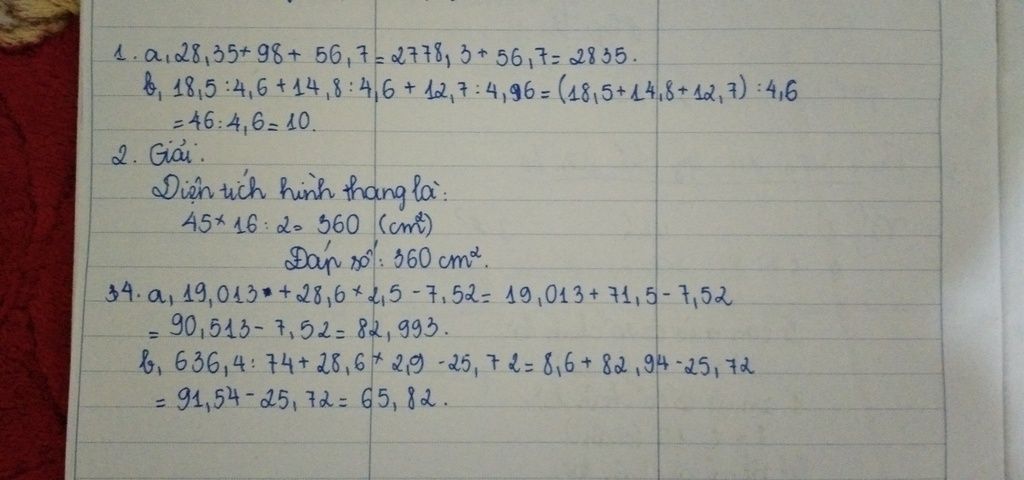 1. a, 28,35 × 98 + 56,7 = 2778,3 + 56,7 = 2835.
b, 18,5 : 4,6 + 14,8 : 4,6 + 12,7 : 4,96 = (18,5 + 14,8 + 12,7) : 4,6
= 46 : 4,6 = 10.
2. Giải.
Diện tích hình thang là:
45 × 16 : 2 = 360 (cm²)
Đáp số: 360 cm².
34. a, 19,013 + 28,6 × 2,5 - 7,52 = 19,013 + 71,5 - 7,52
= 90,513 - 7,52 = 82,993.
b, 636,4 : 74 + 28,6 × 2,9 - 25,72 = 8,6 + 82,94 - 25,72
= 91,54 - 25,72 = 65,82.